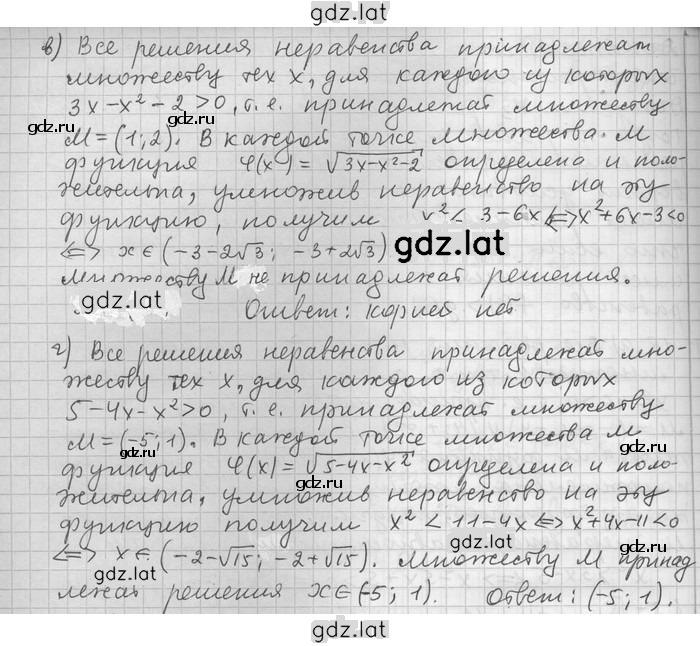 gdz.lat
в) Все решения неравенства принадлежат
множеству тех x, для каждого из которых
3x-x²-2>0, т.е. принадлежат множеству
gdz.lat
gdz.lat
M=(1;2). В каждой точке множества M
функция φ(x)=√(3x-x²-2) определена и поло-
жительна, умножив неравенство на эту
функцию, получим x²<3-6x⟺x²+6x-3<0
gdz.lat
⟺ x∈(-3-2√3; -3+2√3)
множеству M не принадлежат решения.
gdz.lat
Ответ: корней нет
г) Все решения неравенства принадлежат мно-
gdz.lat
жеству тех x, для каждого из которых
5-4x-x²>0, т.е. принадлежат множеству
M=(-5;1). В каждой точке множества M
gdz.lat
gdz.lat
функция φ(x)=√(5-4x-x²) определена и поло-
жительна, умножив неравенство на эту
функцию получим x²<11-4x⟺x²+4x-11<0
gdz.lat
⟺ x∈(-2-√15; -2+√15). множеству M принад
gdz.lat
gdz.lat
лежат решения x∈(-5;1). Ответ: (-5;1).
gdz.lat